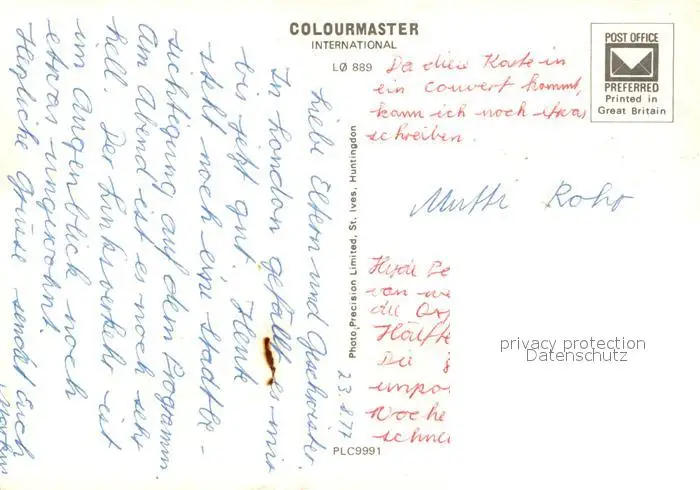 COLOURMASTER
INTERNATIONAL
LØ 889
POST OFFICE
PREFERRED
Printed in
Great Britain
Da diese Karte in
ein Couvert kommt,
kann ich noch etwas
schreiben.
Mutti Rohr
Liebe Eltern und Geschwister.
In London gefällt es mir
bis jetzt gut. Heute
steht noch eine Stadtbe-
sichtigung auf dem Programm.
Am Abend ist es noch sehr
hell. Der Linksverkehr ist
im Augenblick noch
etwas ungewohnt.
Herzliche Grüsse sendet Euch
23.8.77
Photo Precision Limited, St. Ives, Huntingdon
PLC9991
von
die
Hälfte
Die
Woche
privacy protection
Datenschutz